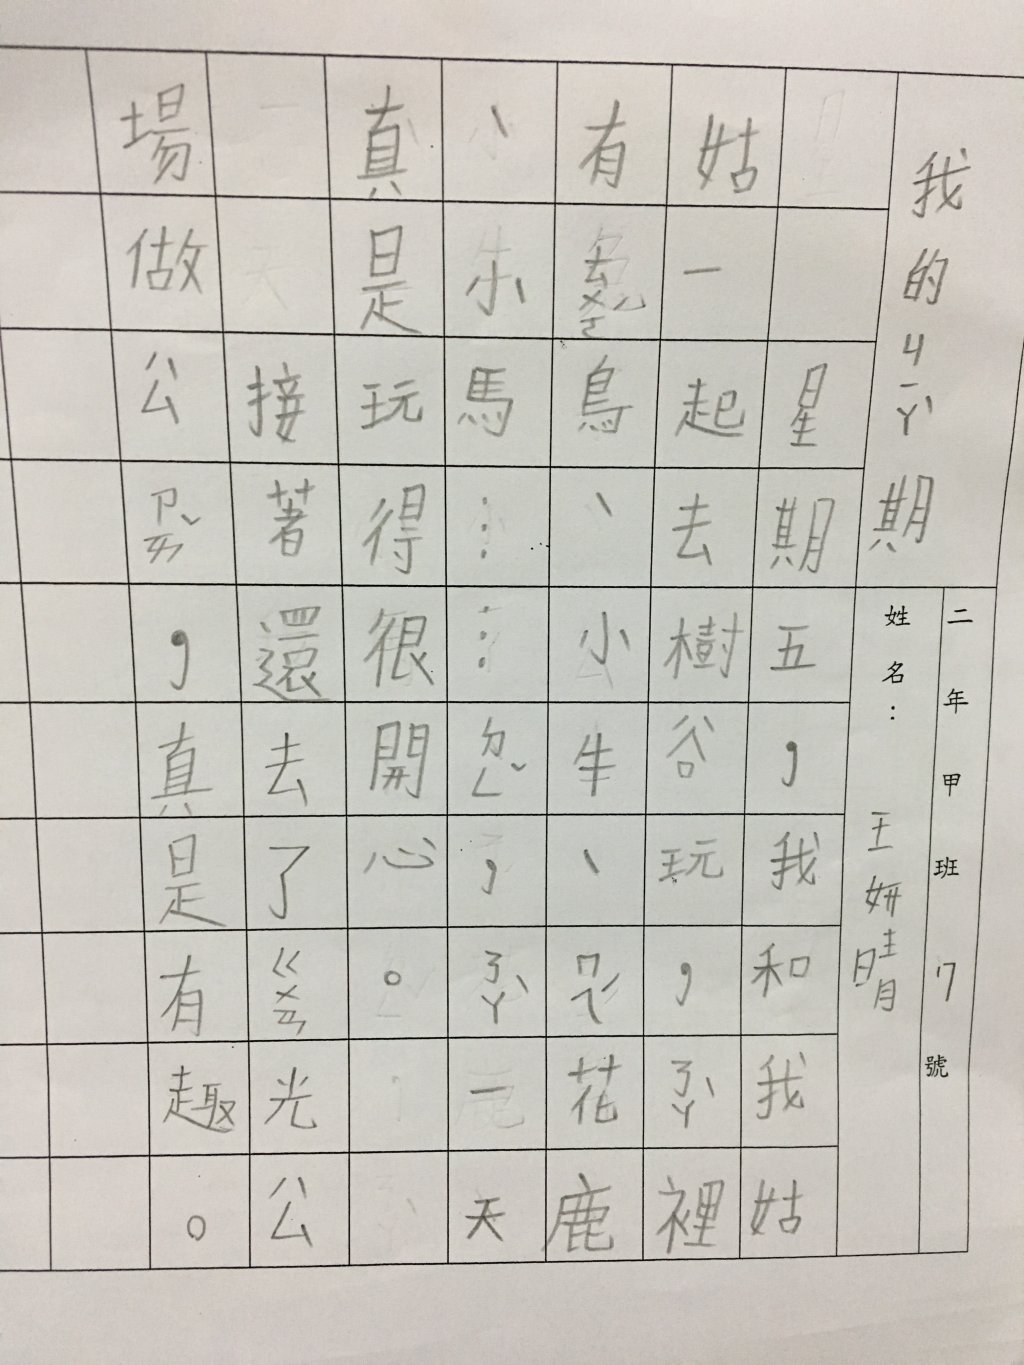 我的ㄐㄧㄚˋ期
二年甲班 7 號
姓名：王妍晴
星期五，我和我姑
姑一起去樹谷玩，ㄋㄚˋ裡
有ㄊㄨㄛˊ鳥、小牛、ㄇㄟˊ花鹿
、小馬……ㄉㄥˇ，ㄋㄚˋ一天
真是玩得很開心。
接著還去了ㄍㄨㄢ光公
場做公ㄗㄞˇ，真是有趣。